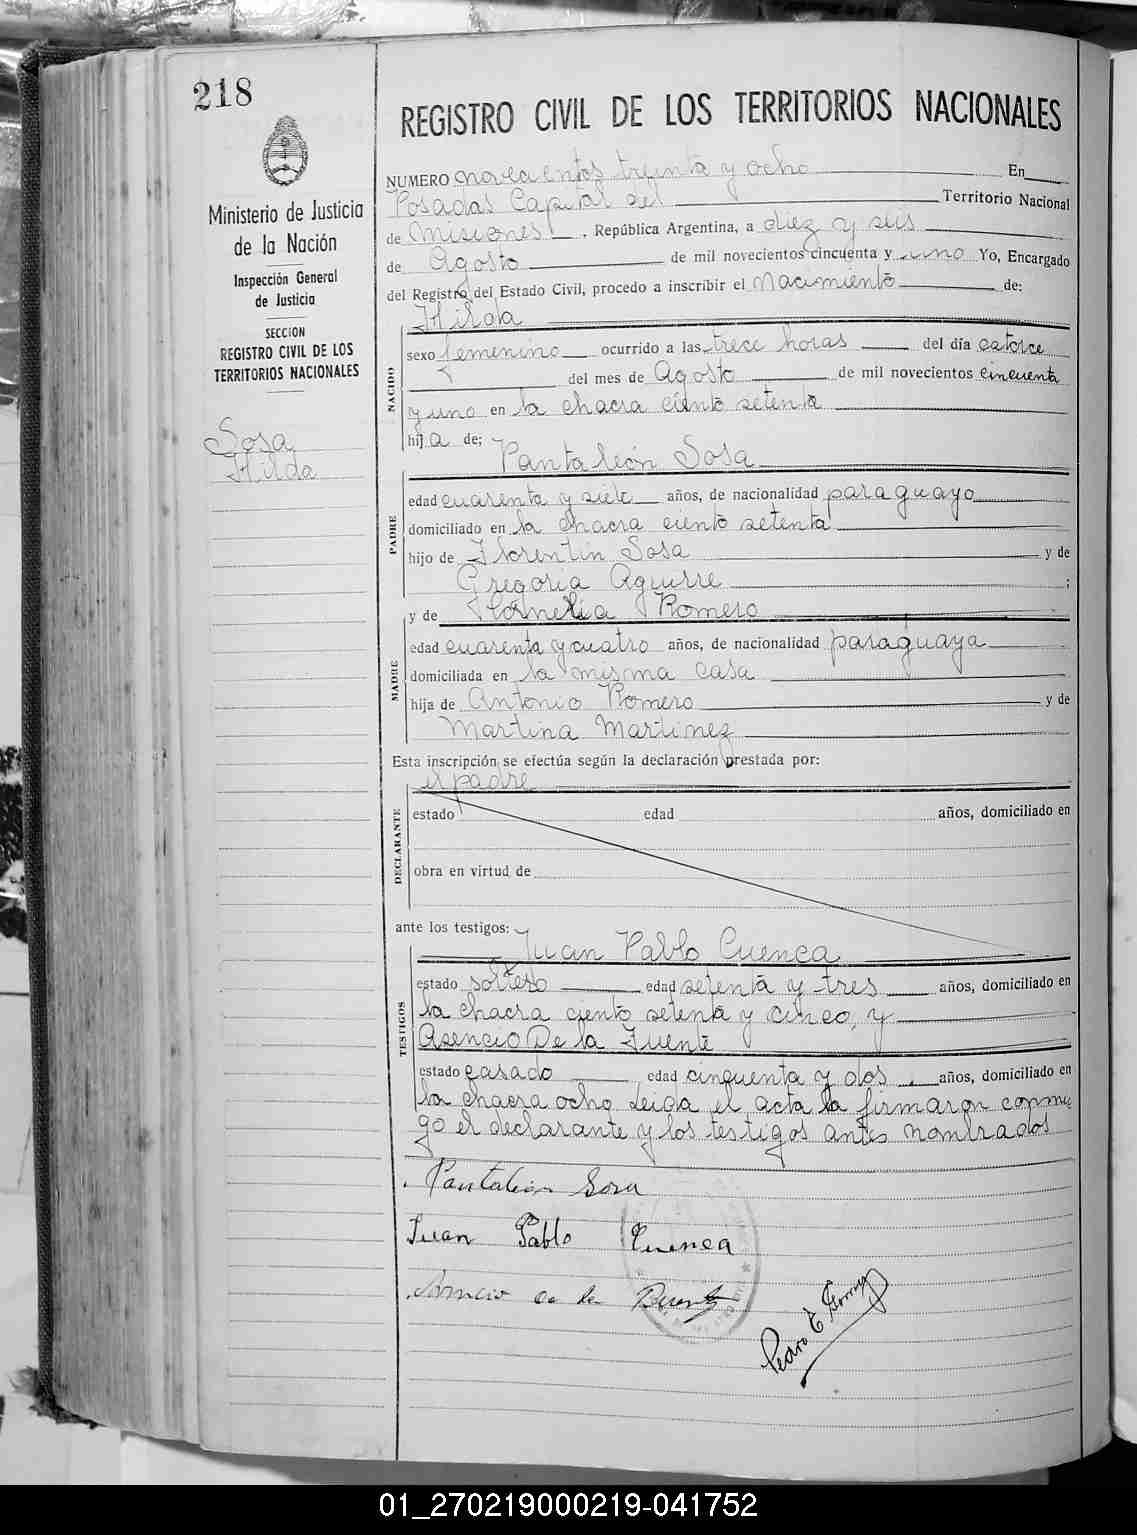 218
REGISTRO CIVIL DE LOS TERRITORIOS NACIONALES
Ministerio de Justicia
de la Nación
Inspección General
de Justicia
SECCION
REGISTRO CIVIL DE LOS
TERRITORIOS NACIONALES
Sosa
Hilda
NUMERO novecientos treinta y ocho En
Posadas Capital del Territorio Nacional
de Misiones, República Argentina, a diez y seis
de Agosto de mil novecientos cincuenta y uno Yo, Encargado
del Registro del Estado Civil, procedo a inscribir el nacimiento de:
Hilda
NACIDO
sexo femenino ocurrido a las trece horas del día catorce
del mes de Agosto de mil novecientos cincuenta
y uno en la chacra ciento setenta
hija de;
Pantaleón Sosa
PADRE
edad cuarenta y siete años, de nacionalidad paraguayo
domiciliado en la chacra ciento setenta
hijo de Florentín Sosa y de
Gregoria Aguirre ;
y de Cornelia Romero
MADRE
edad cuarenta y cuatro años, de nacionalidad paraguaya
domiciliada en la misma casa
hija de Antonio Romero y de
Martina Martinez
Esta inscripción se efectúa según la declaración prestada por:
el padre
DECLARANTE
estado edad años, domiciliado en
obra en virtud de
ante los testigos:
Juan Pablo Cuenca
TESTIGOS
estado soltero edad setenta y tres años, domiciliado en
la chacra ciento setenta y cinco, y
Asencio De la Fuente
estado casado edad cinquenta y dos años, domiciliado en
la chacra ocho Leida el acta la firmaron conmi
go el declarante y los testigos antes nombrados
Pantaleon Sosa
Juan Pablo Cuenca
de la
Pedro E
01_270219000219-041752